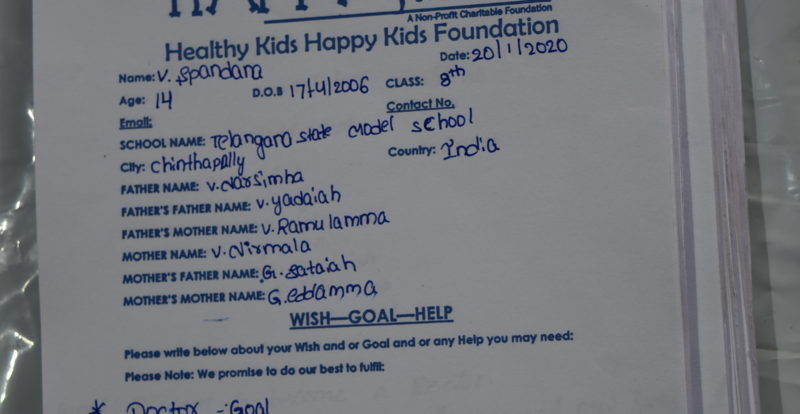 A Non-Profit Charitable Foundation
Healthy Kids Happy Kids Foundation
Name: V. Spandana Date: 20/1/2020
Age: 14 D.O.B 17/4/2006 CLASS: 8th
Email: Contact No.
SCHOOL NAME: Telangana state model school
City: Chinthapally Country: India
FATHER NAME: V. Narsimha
FATHER'S FATHER NAME: V. yadaiah
FATHER'S MOTHER NAME: V. Ramulamma
MOTHER NAME: V. Nirmala
MOTHER'S FATHER NAME: G. sataiah
MOTHER'S MOTHER NAME: G. eddamma
WISH—GOAL—HELP
Please write below about your Wish and or Goal and or any Help you may need:
Please Note: We promise to do our best to fulfil:
* Doctor - Goal